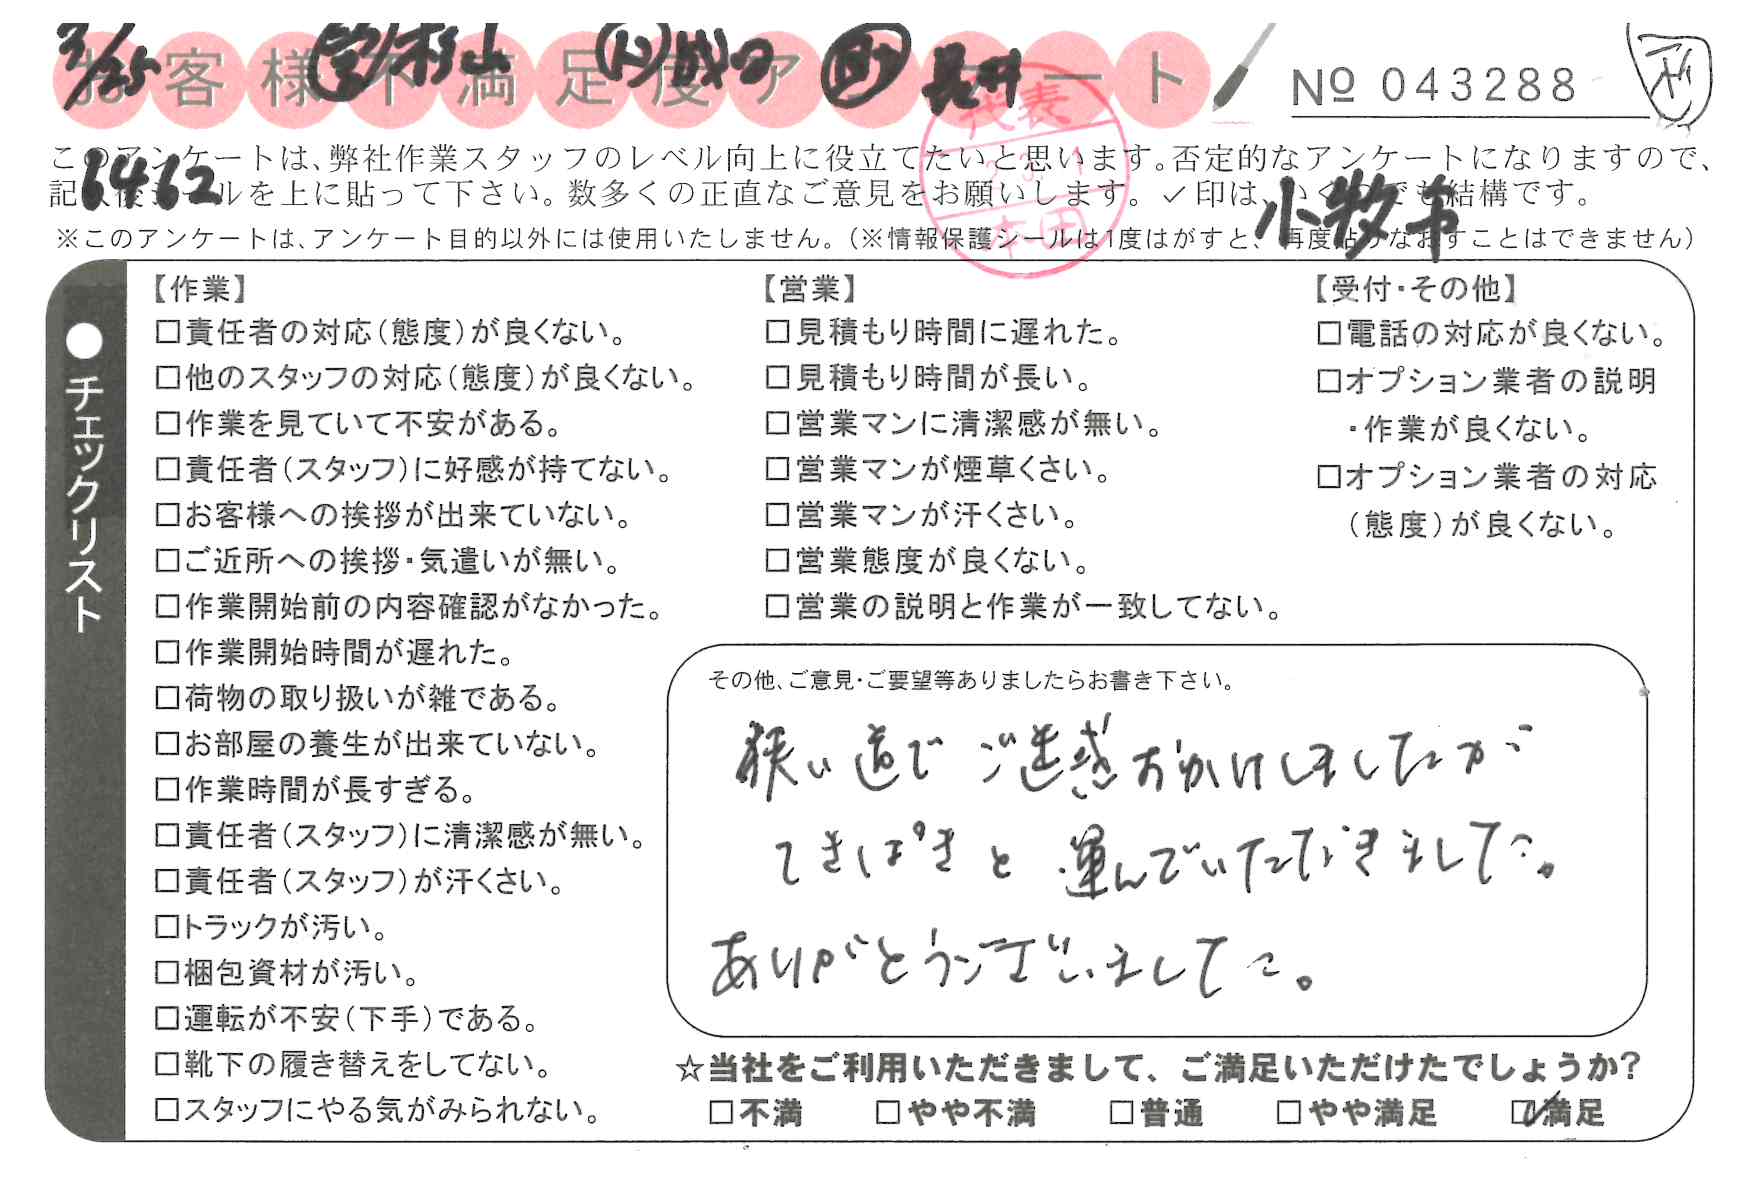 お客様不満足度アンケート
No 043288
3/25
杉山
長井
代表
本田
6462
小牧市
このアンケートは、弊社作業スタッフのレベル向上に役立てたいと思います。否定的なアンケートになりますので、
記入後シールを上に貼って下さい。数多くの正直なご意見をお願いします。✓印は、いくつでも結構です。
※このアンケートは、アンケート目的以外には使用いたしません。(※情報保護シールは1度はがすと、再度貼りなおすことはできません)
●チェックリスト
【作業】
□責任者の対応(態度)が良くない。
□他のスタッフの対応(態度)が良くない。
□作業を見ていて不安がある。
□責任者(スタッフ)に好感が持てない。
□お客様への挨拶が出来ていない。
□ご近所への挨拶・気遣いが無い。
□作業開始前の内容確認がなかった。
□作業開始時間が遅れた。
□荷物の取り扱いが雑である。
□お部屋の養生が出来ていない。
□作業時間が長すぎる。
□責任者(スタッフ)に清潔感が無い。
□責任者(スタッフ)が汗くさい。
□トラックが汚い。
□梱包資材が汚い。
□運転が不安(下手)である。
□靴下の履き替えをしてない。
□スタッフにやる気がみられない。
【営業】
□見積もり時間に遅れた。
□見積もり時間が長い。
□営業マンに清潔感が無い。
□営業マンが煙草くさい。
□営業マンが汗くさい。
□営業態度が良くない。
□営業の説明と作業が一致してない。
【受付・その他】
□電話の対応が良くない。
□オプション業者の説明
・作業が良くない。
□オプション業者の対応
(態度)が良くない。
その他、ご意見・ご要望等ありましたらお書き下さい。
狭い道でご迷惑おかけしましたが
てきぱきと運んでいただきました。
ありがとうございました。
☆当社をご利用いただきまして、ご満足いただけたでしょうか?
□不満 □やや不満 □普通 □やや満足 ☑満足